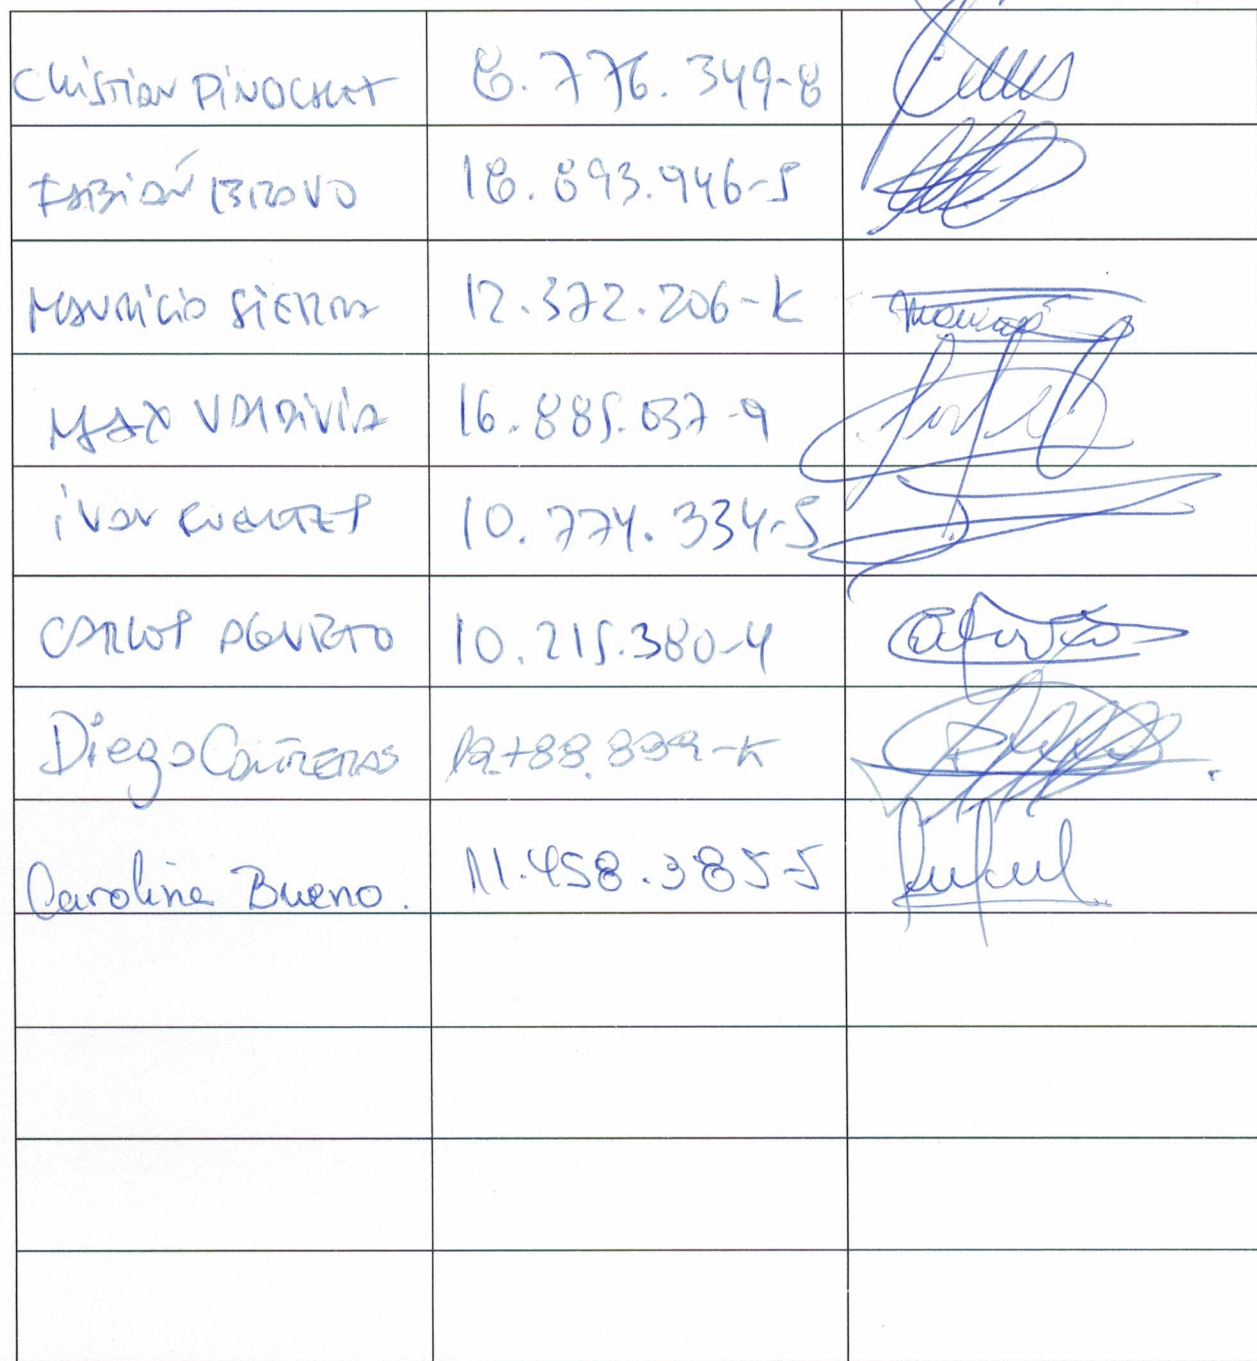 Christian PINOCHET 8.776.349-8
FABIAN BRAVO 18.893.946-5
MAURICIO SIERRA 12.372.206-K
MAX VALDIVIA 16.885.037-9
IVAN FUENTES 10.774.334-5
CARLOS AGURTO 10.215.380-4
Diego CONTRERAS 19.788.839-K
Carolina Bueno. 11.458.385-5